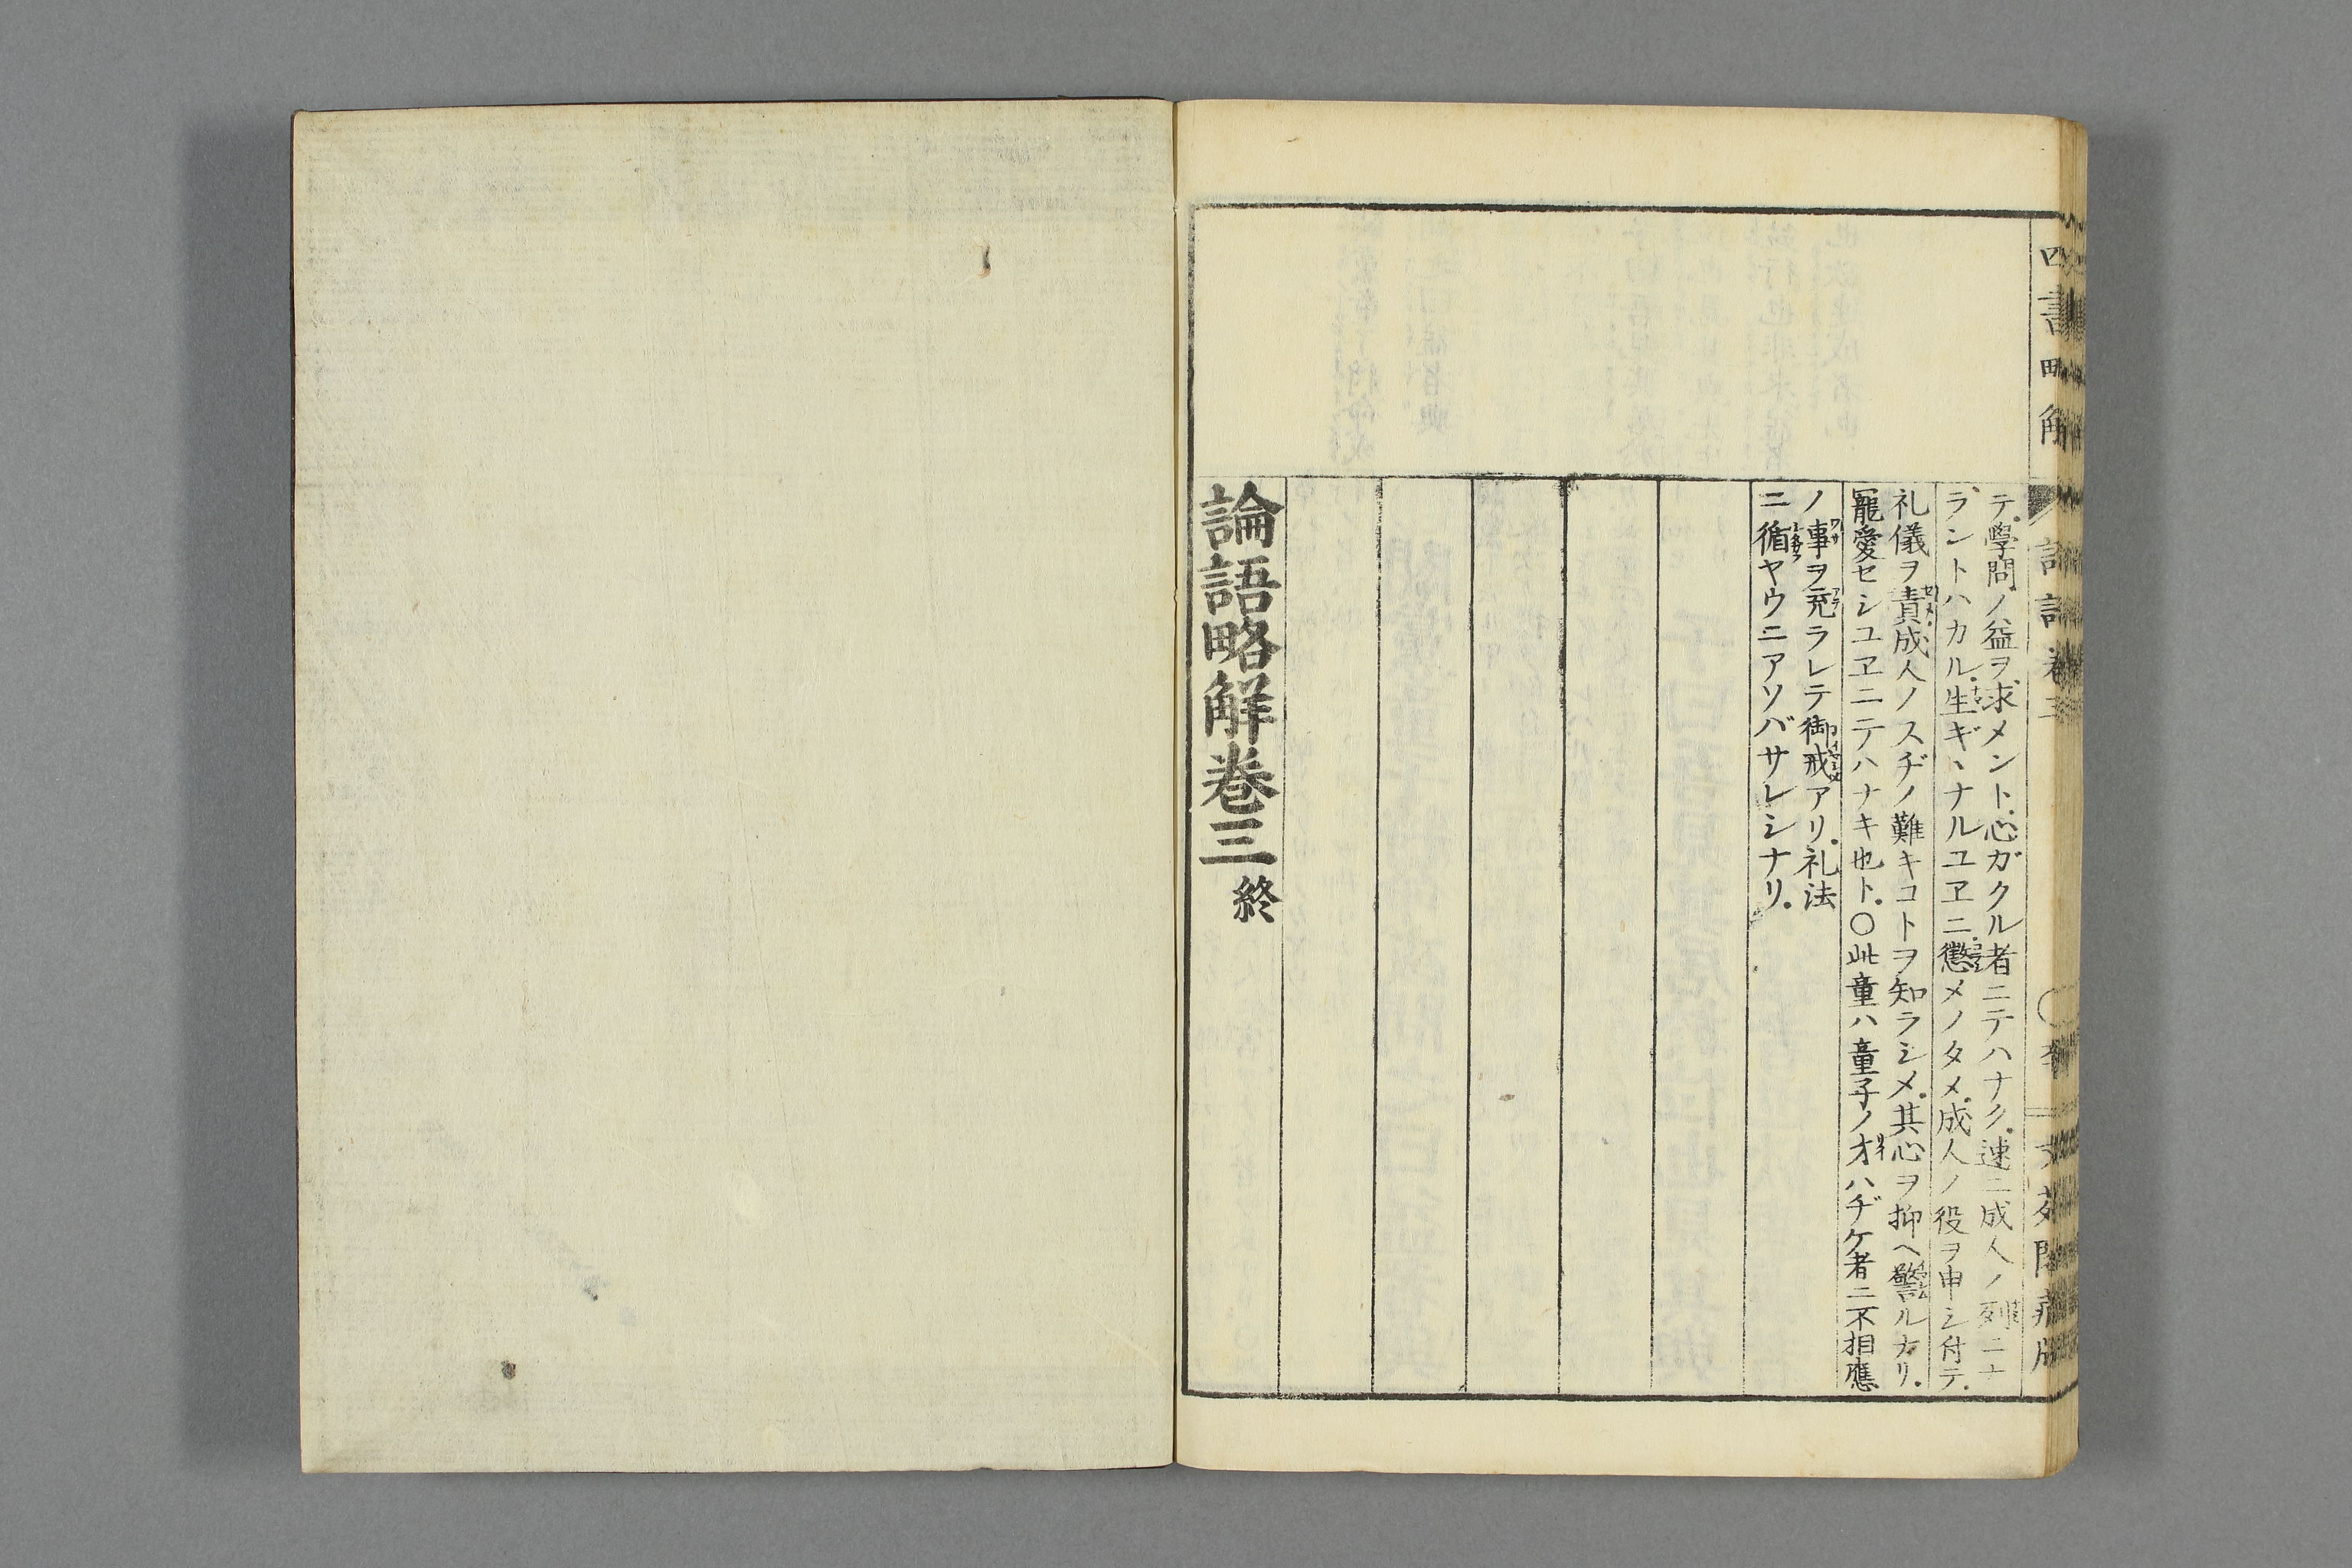 四書略解
論語卷三
テ學問ノ益ヲ求メント心ガクル者ニテハナク速ニ成人ノ列ニナ
ラントハカル生ギヽナルユヱニ懲メノタメ成人ノ役ヲ申シ付テ
礼儀ヲ責成人ノスヂノ難キコトヲ知ラシメ其心ヲ抑ヘ警ルナリ
寵愛セシユヱニテハナキ也ト〇此童ハ童子ノ才ハヂケ者ニ不相應
ノ事ヲ充ラレテ御戒アリ礼法
ニ循ヤウニアソバサレシナリ
論語略解卷三終